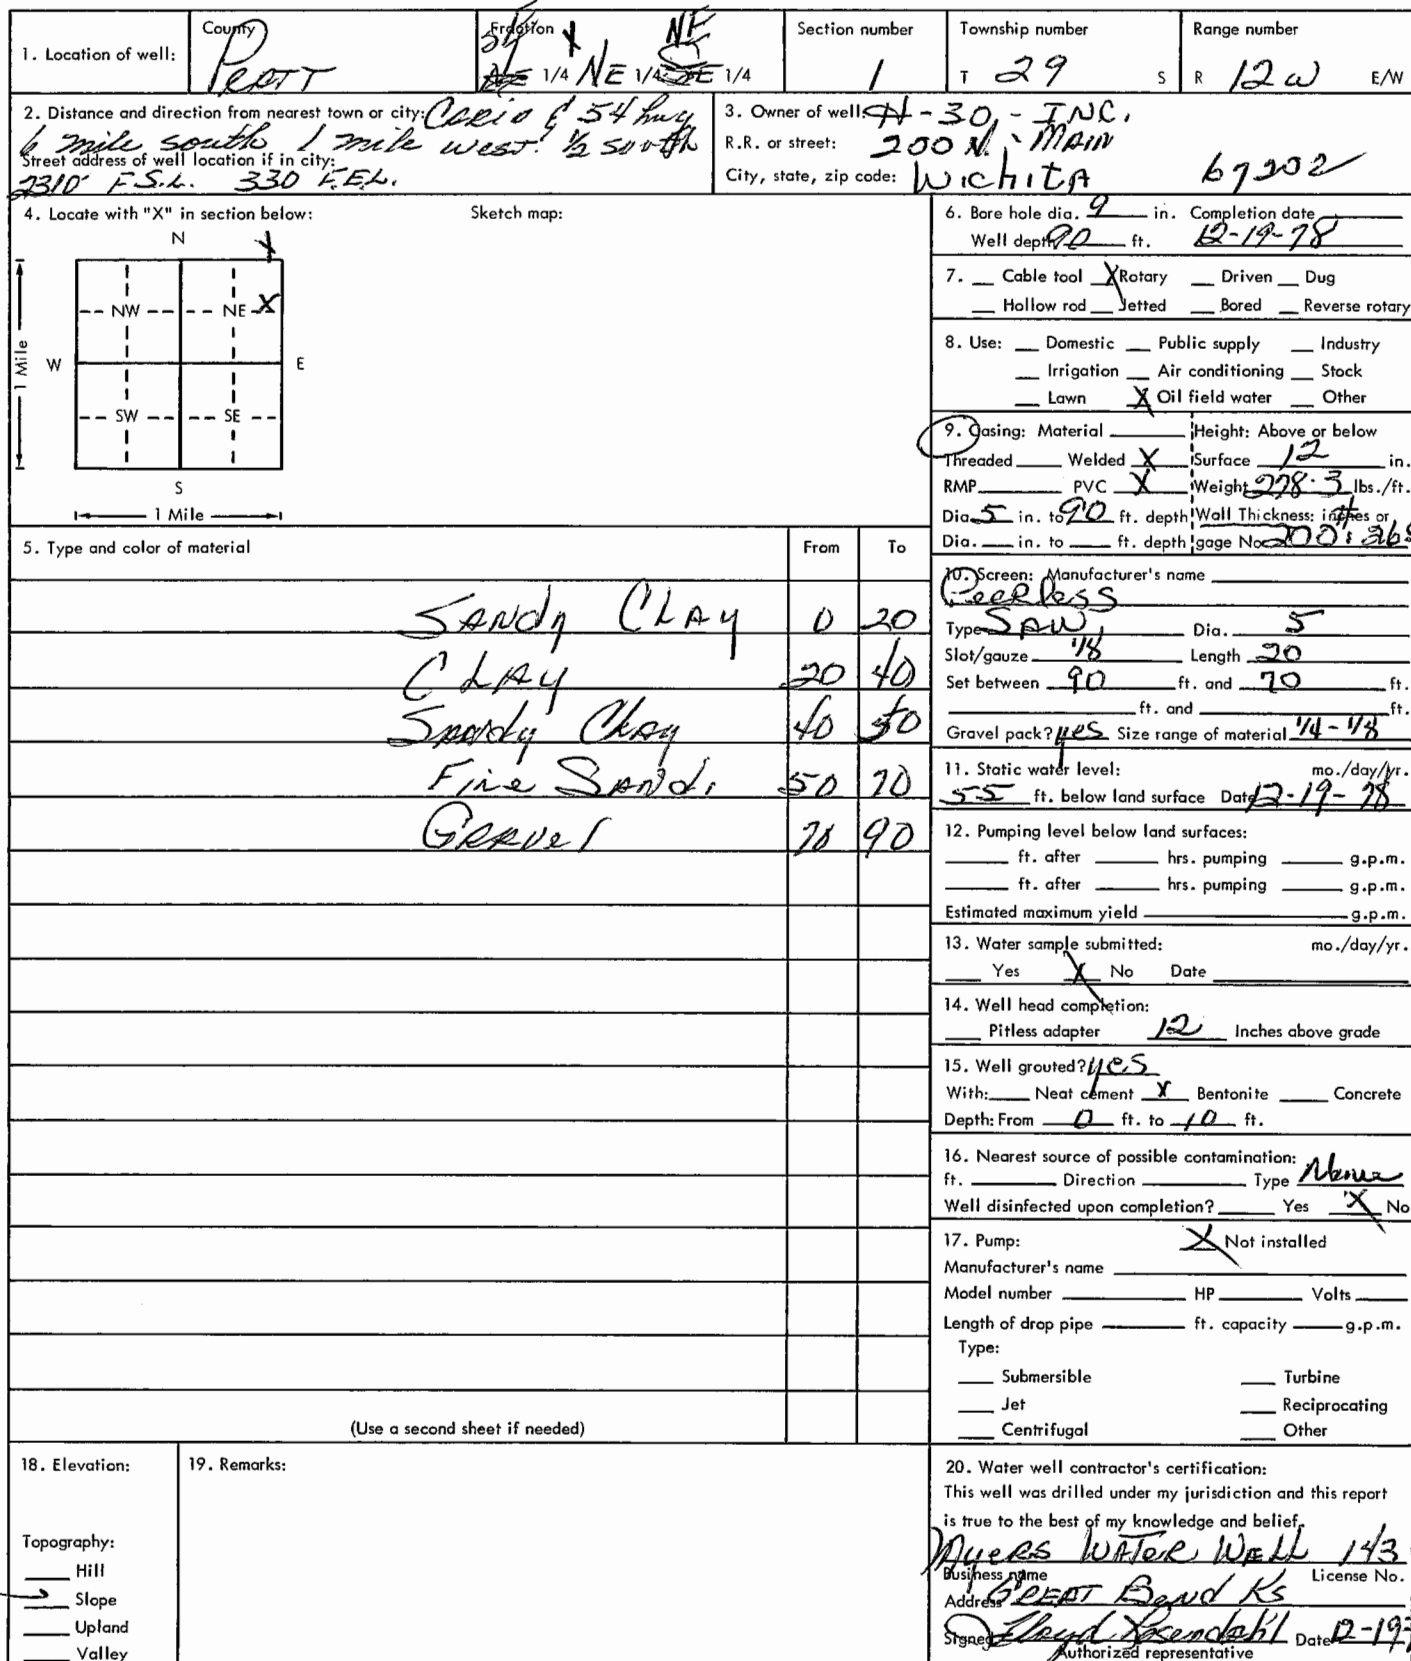 1. Location of well:
County
Pratt
Fraction
1/4 NE 1/4 NE 1/4
Section number
1
Township number
T 29 S
Range number
R 12W E/W
2. Distance and direction from nearest town or city: Cario & 54 hwy
6 mile south 1 mile west. 1/2 south
Street address of well location if in city:
2310' F.S.L. 330 F.E.L.
3. Owner of well: H-30 - INC.
R.R. or street: 200 N. MAIN
City, state, zip code: Wichita 67202
4. Locate with "X" in section below:
Sketch map:
N
X
NW NE X
W E
1 Mile
SW SE
S
1 Mile
5. Type and color of material From To
Sandy Clay 0 20
Clay 20 40
Sandy Clay 40 50
Fine Sand. 50 70
Gravel 70 90
(Use a second sheet if needed)
6. Bore hole dia. 9 in. Completion date
Well depth 90 ft. 12-19-78
7. Cable tool X Rotary Driven Dug
Hollow rod Jetted Bored Reverse rotary
8. Use: Domestic Public supply Industry
Irrigation Air conditioning Stock
Lawn X Oil field water Other
9. Casing: Material Height: Above or below
Threaded Welded X Surface 12 in.
RMP PVC X Weight 278.3 lbs./ft.
Dia. 5 in. to 90 ft. depth Wall Thickness: inches or
Dia. in. to ft. depth gage No. 200
10. Screen: Manufacturer's name
Peerless
Type Saw Dia. 5
Slot/gauze 1/8 Length 20
Set between 90 ft. and 70 ft.
ft. and ft.
Gravel pack? yes Size range of material 1/4 - 1/8
11. Static water level: mo./day/yr.
55 ft. below land surface Date 12-19-78
12. Pumping level below land surfaces:
ft. after hrs. pumping g.p.m.
ft. after hrs. pumping g.p.m.
Estimated maximum yield g.p.m.
13. Water sample submitted: mo./day/yr.
Yes X No Date
14. Well head completion:
Pitless adapter 12 Inches above grade
15. Well grouted? yes
With: Neat cement X Bentonite Concrete
Depth: From 0 ft. to 10 ft.
16. Nearest source of possible contamination:
ft. Direction Type None
Well disinfected upon completion? Yes X No
17. Pump: X Not installed
Manufacturer's name
Model number HP Volts
Length of drop pipe ft. capacity g.p.m.
Type:
Submersible Turbine
Jet Reciprocating
Centrifugal Other
18. Elevation:
Topography:
Hill
Slope
Upland
Valley
19. Remarks:
20. Water well contractor's certification:
This well was drilled under my jurisdiction and this report
is true to the best of my knowledge and belief.
Myers Water Well 143
Business name License No.
Address Great Bend Ks
Signed Floyd Rosendahl Date 12-19-
Authorized representative